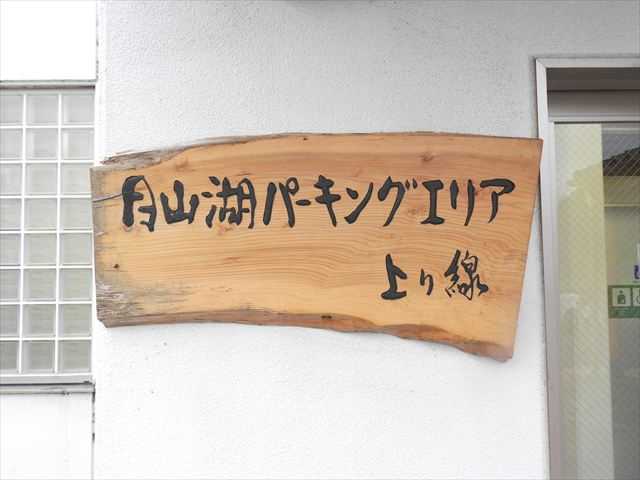 月山湖パーキングエリア
上り線